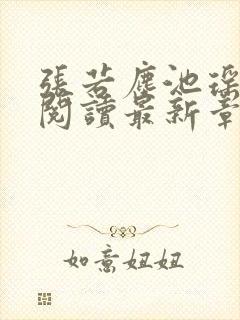 張若塵池瑤
閱讀最新章
如意妞妞